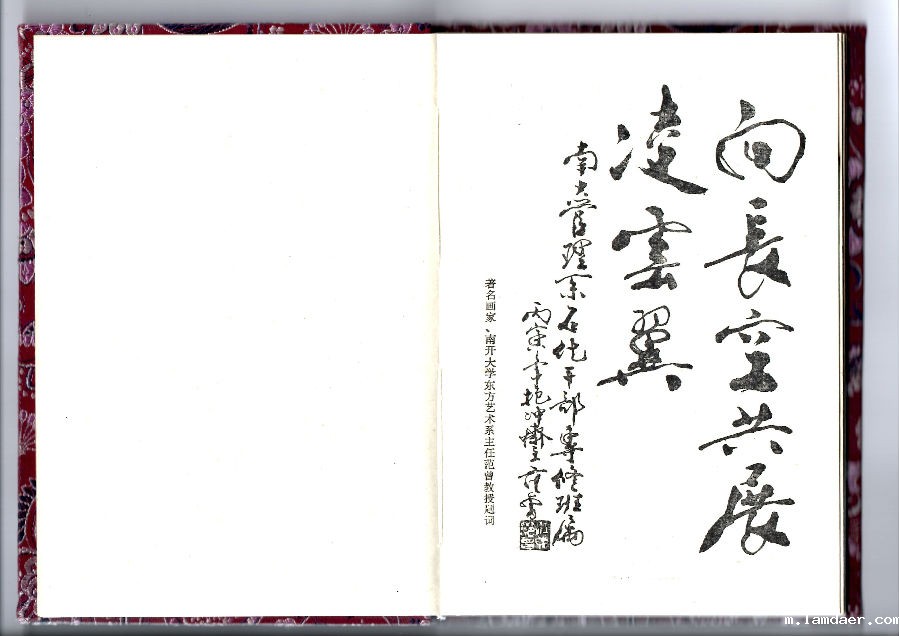 向長空共展
凌雲翼
南大管理系石化干部專修班屬
丙寅年抱冲齋主范曾
著名画家、南开大学东方艺术系主任范曾教授题词
m.lamdaer.com